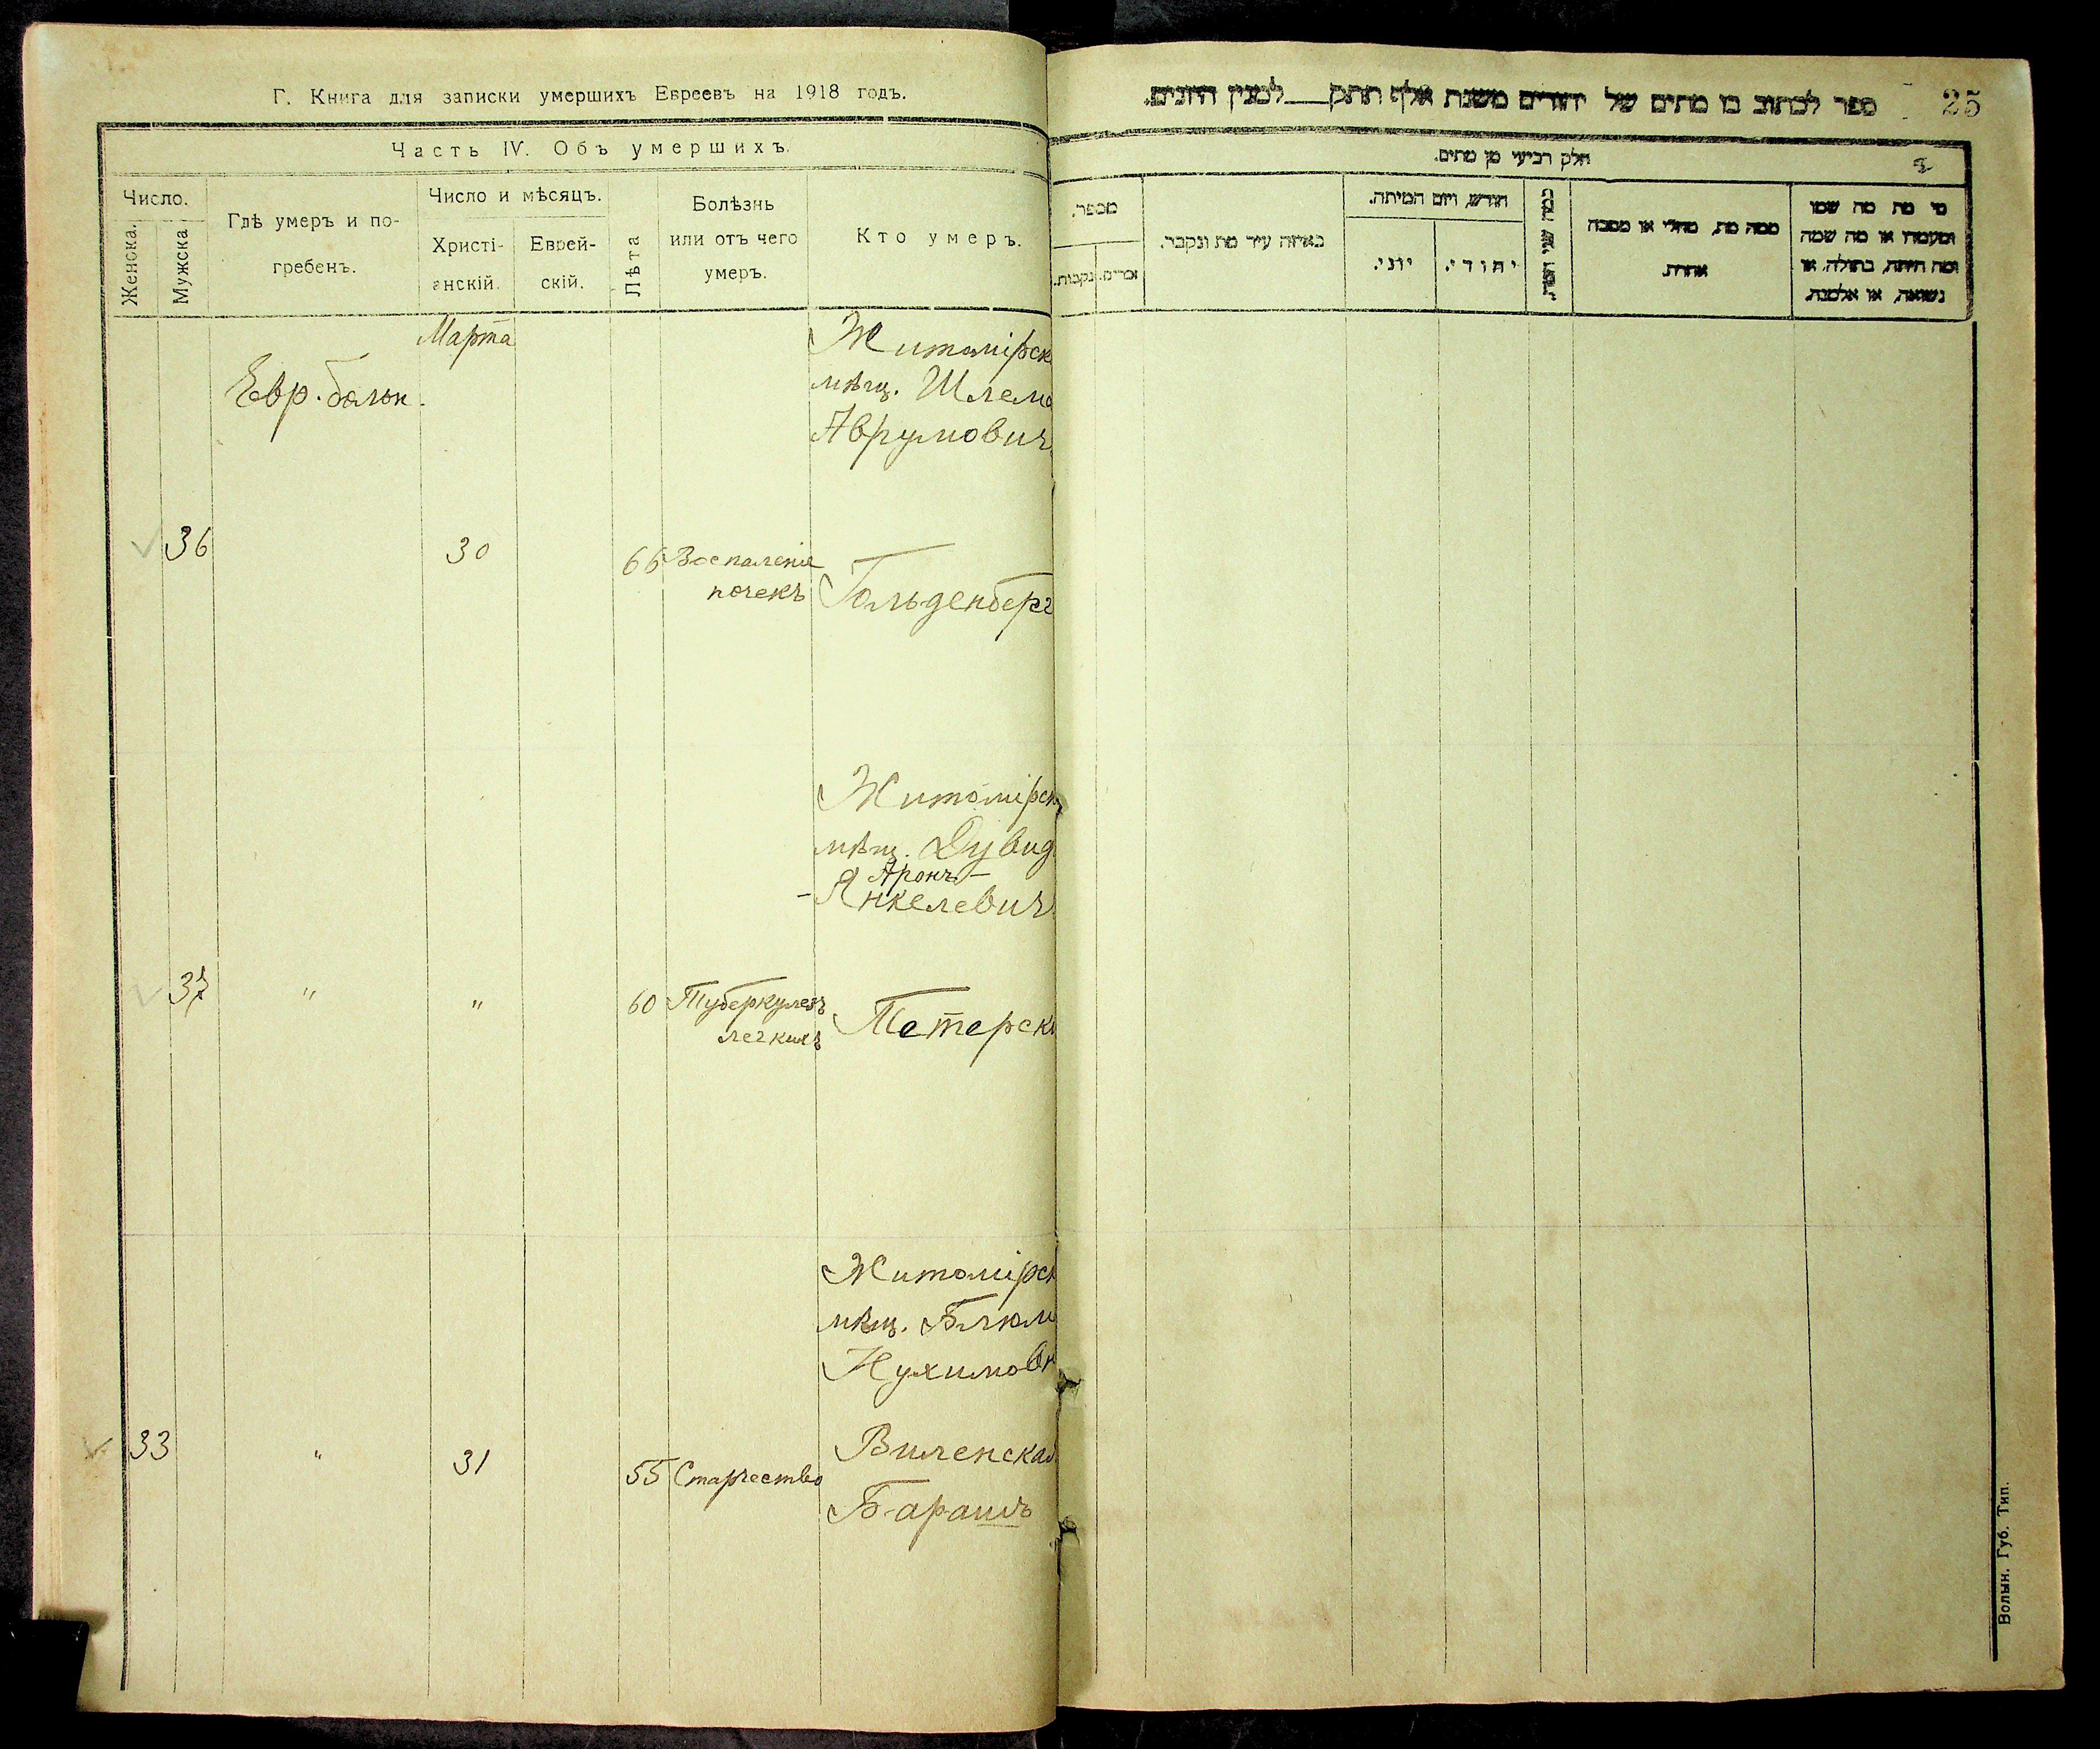 Г. Книга для записки умершихъ Евреевъ на 1918 годъ.
Часть IV. Объ умершихъ.
Число.
Женска.
Мужска
Гдѣ умеръ и по-
гребенъ.
Число и мѣсяцъ.
Христі-
анскій.
Еврей-
скій.
Лѣта
Болѣзнь
или отъ чего
умеръ.
Кто умеръ.
Марта
Евр. больн.
Житомірск
мѣщ. Шлема
Аврумович
36
30
66
Воспаленіе
почекъ
Гольденберг
Житомірск
мѣщ. Дувид
Аронъ-
-Янкелевич
37
"
"
60
Туберкулезъ
легкихъ
Тетерск
Житомірск
мѣщ. Блюм
Нухимовн
33
"
31
55
Старчество
Виленская
Барашъ
ספר לכתוב בו מתים של יהודים משנת אלף תתק__למנין היונים.
25
חלק רביעי מן מתים.
מספר.
נקבות.
זכרים.
באיזה עיר מת ונקבר.
חודש, ויום המיתה.
יוני.
יהודי.
ממה מת, מחלי או מסבה
אחרת.
מי מת מה שמו
ומעמדו או מה שמה
ומה היתה, בתולה, או
נשואה, או אלמנה.
Волын. Губ. Тип.